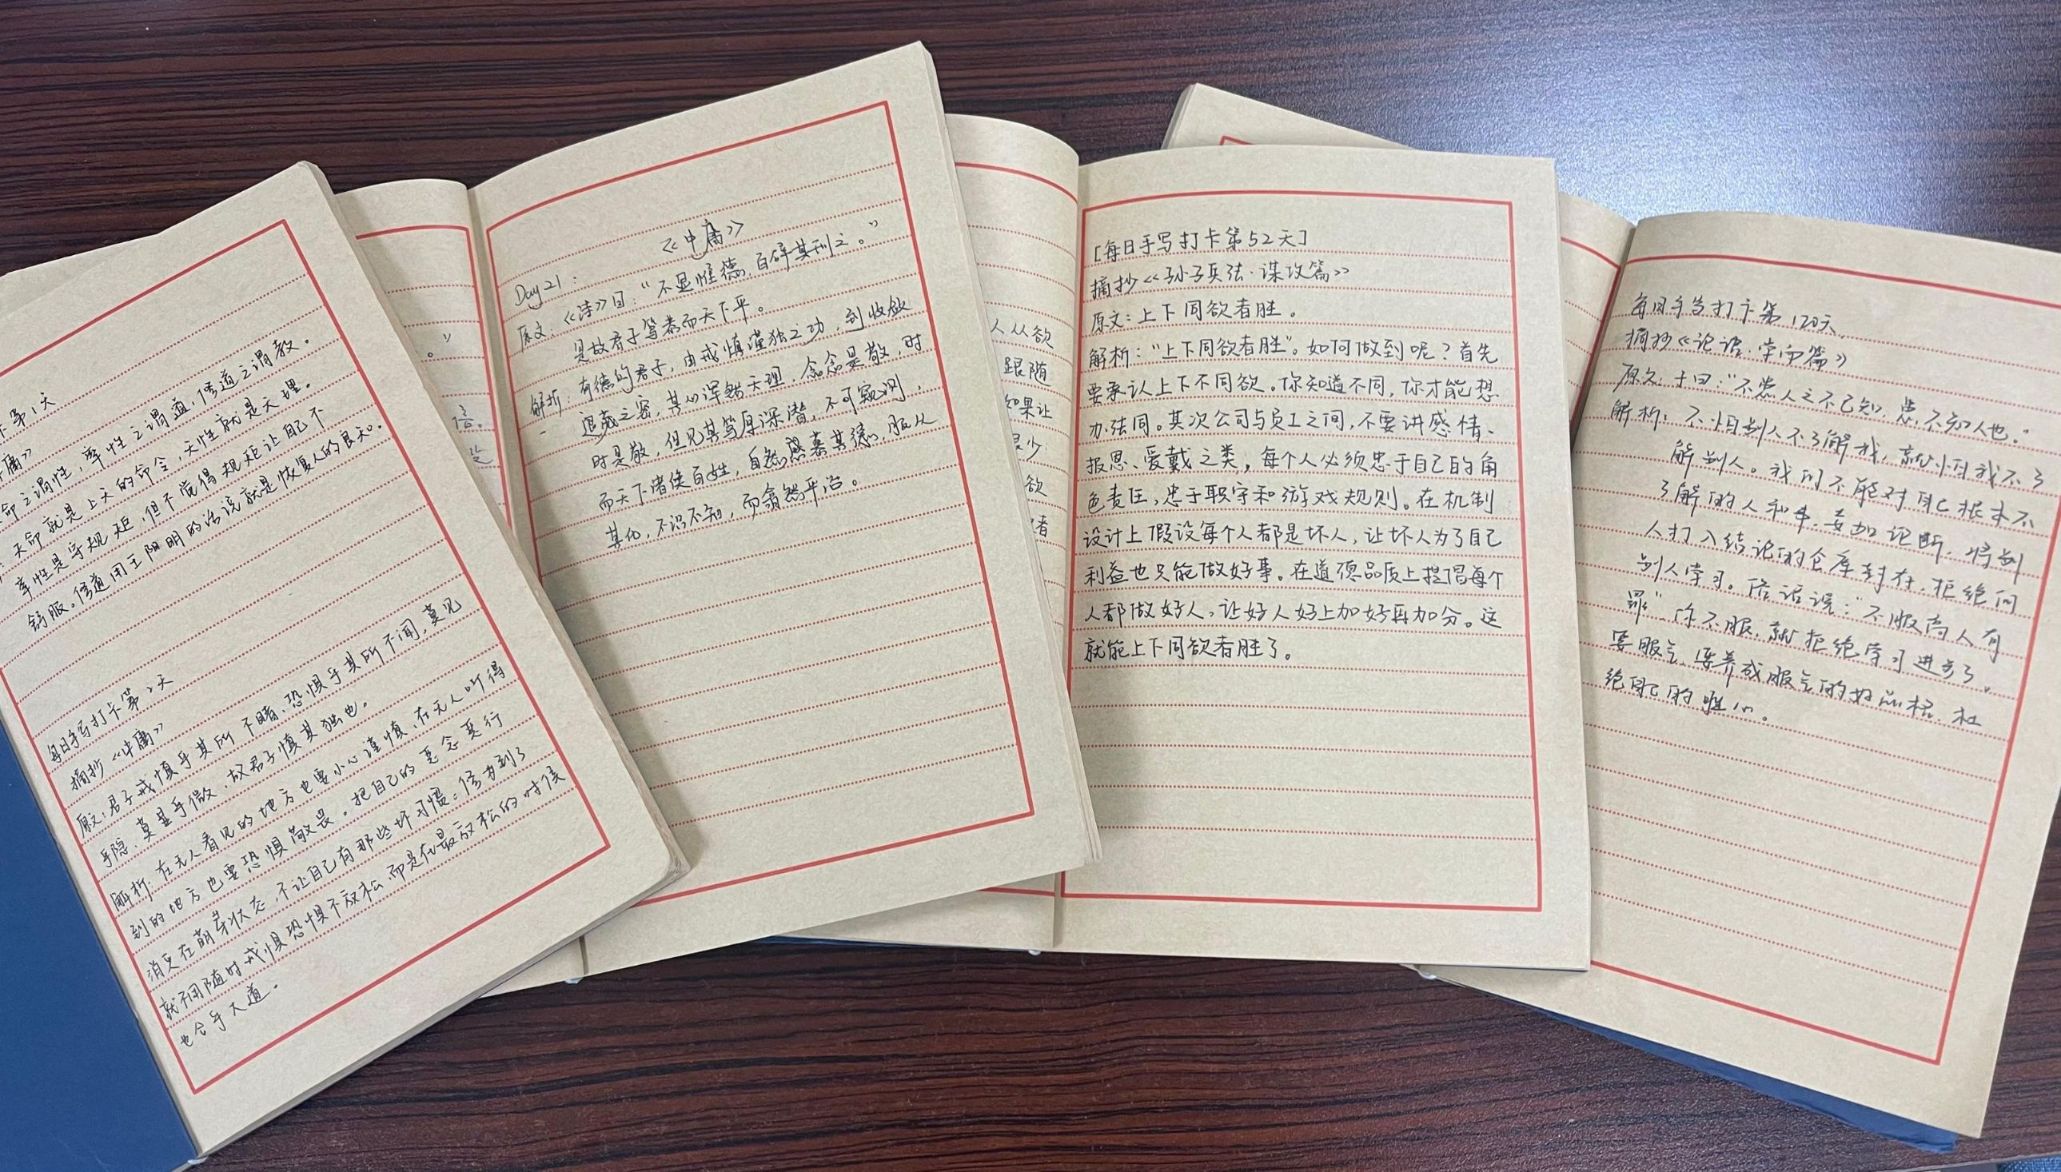 卡第1天
庸》
命之谓性，率性之谓道，修道之谓教。
天命就是上天的命令，天性就是天理。
率性是守规矩，但不觉得规矩让自己不
舒服。修道用王阳明的话说就是恢复人的良知。
每日手写打卡第2天
摘抄《中庸》
原文：君子戒慎乎其所不睹，恐惧乎其所不闻，莫见
乎隐，莫显乎微，故君子慎其独也。
解析：在无人看见的地方也要小心谨慎，在无人听得
到的地方也要恐惧敬畏。把自己的恶念恶行
消灭在萌芽状态，不让自己有那些坏习惯。修为到了
就不用随时戒慎恐惧不放松，而是在最放松的时候
也合乎大道。
。”
《中庸》
Day21：
原文：《诗》曰：“不显惟德，百辟其刑之。”
是故君子笃恭而天下平。
解析：有德的君子，由戒慎谨独之功，到收敛
退藏之密，其心浑然天理，念念是敬，时
时是敬，但见其笃厚深潜，不可窥测，
而天下诸侯百姓，自然感慕其德，服从
其化，不识不知，而翕然平治。
人从欲
跟随
如果让
很少
欲
者
[每日手写打卡第52天]
摘抄《孙子兵法·谋攻篇》
原文：上下同欲者胜。
解析：“上下同欲者胜”。如何做到呢？首先
要承认上下不同欲。你知道不同，你才能想
办法同。其次公司与员工之间，不要讲感情、
报恩、爱戴之类，每个人必须忠于自己的角
色责任，忠于职守和游戏规则。在机制
设计上假设每个人都是坏人，让坏人为了自己
利益也只能做好事。在道德品质上提倡每个
人都做好人，让好人好上加好再加分。这
就能上下同欲者胜了。
每日手写打卡第120天
摘抄《论语·学而篇》
原文：子曰：“不患人之不己知，患不知人也。”
解析：不怕别人不了解我，就怕我不了
解别人。我们不能对自己根本不
了解的人和事，妄加论断，将别
人打入结论的仓库封存，拒绝向
别人学习。俗话说：“不服高人有
罪”你不服，就拒绝学习进步了。
要服气，培养成服气的好品格，杜
绝自己的骄心。